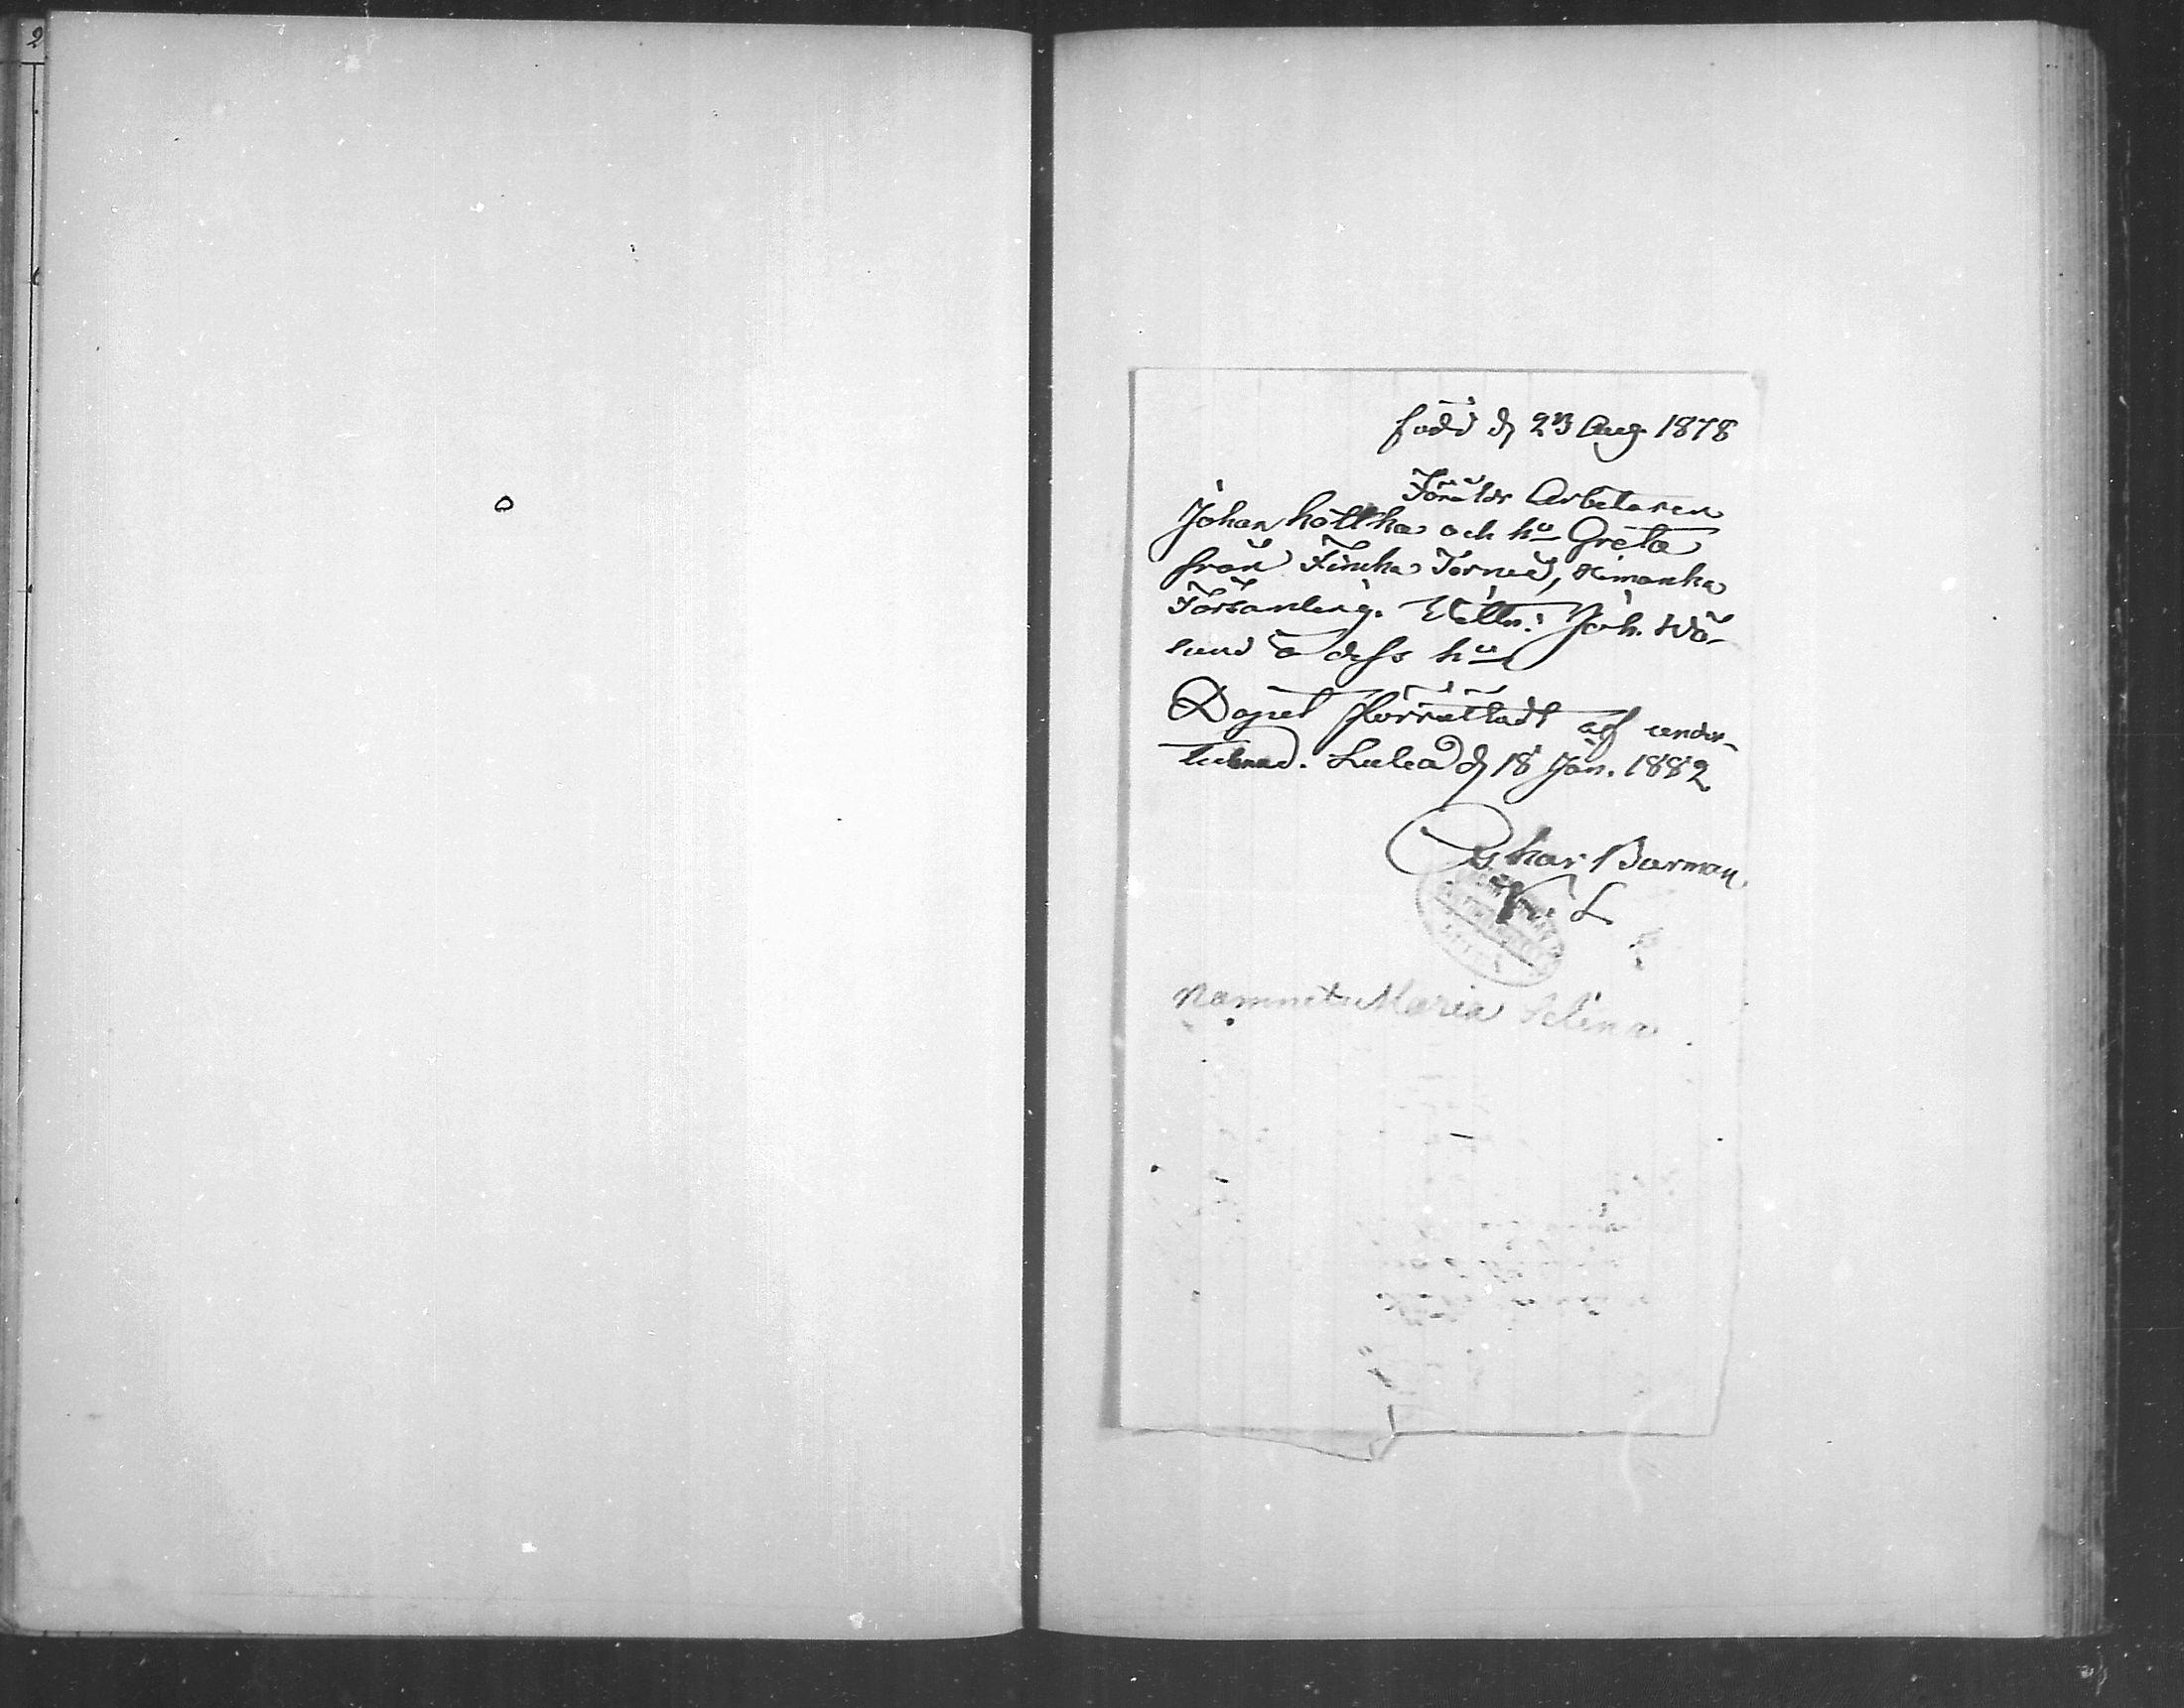 2
född d 23 Aug. 1878
Föräldr Arbetaren
Johan och hu Greta
från Finska Torneå,
Församling. Vittn: Joh. Wö-
lund o dess hu
Dopet förrättadt af under-
tecknad. Luleå d 18 Jan. 1882
Oskar Burman
L
Namnet Maria Selina